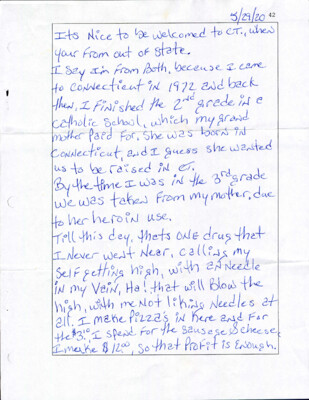 5/29/20 42
Its Nice to be welcomed to CT., when
your From out of State.
I say I'm From Both, because I came
to Connecticut in 1972 and back
then, I Finished the 2nd grade in a
Catholic School, which my grand
mother Paid For. She was born in
Connecticut, and I guess she wanted
us to be raised in CT.
By the time I was in the 3rd grade
we was taken From my mother, due
to her heroin use.
Till this day, thats ONE drug that
I Never went Near. Calling my
Self getting high, with a Needle
in my Vein, Ha! that will Blow the
high, with me Not liking Needles at
all. I make Pizza's in here and For
the $3.00, I spend For the Sausage & cheese,
I make $12.00, So that Profit is Enough.